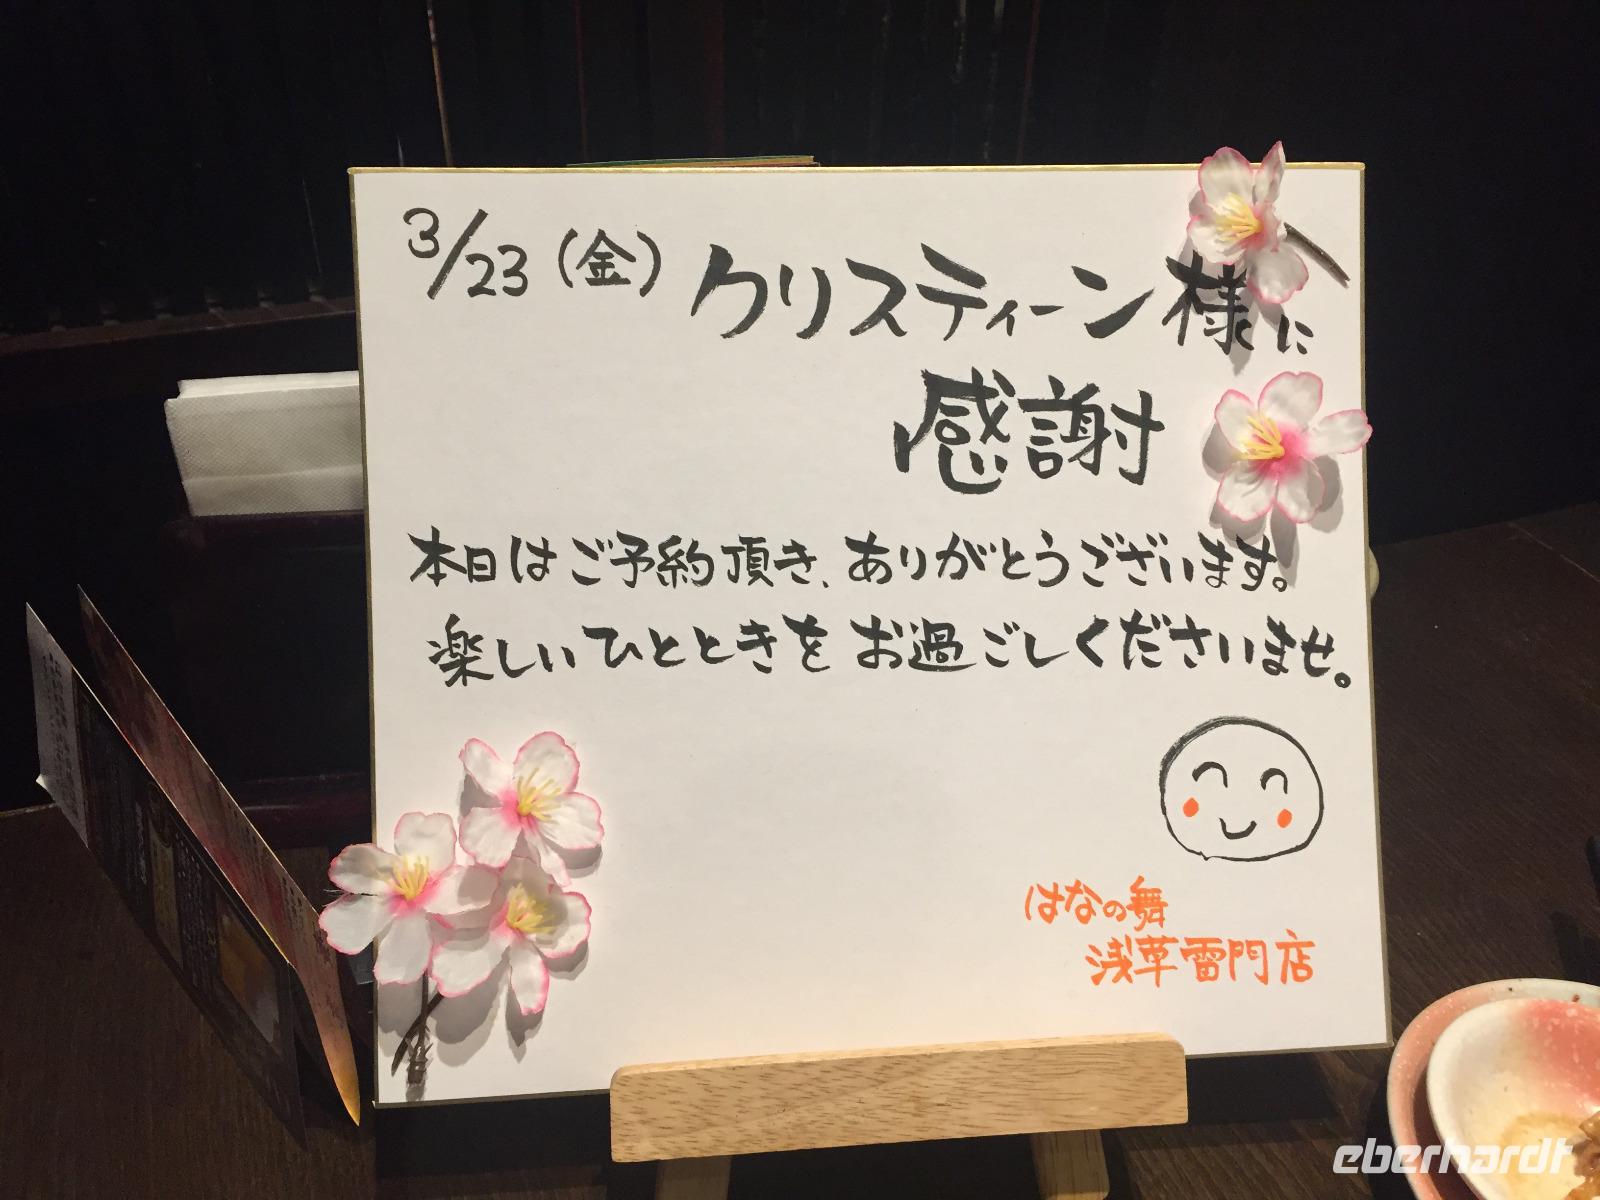 3/23（金）クリスティーン様に
感謝
本日はご予約頂き、ありがとうございます。
楽しいひとときをお過ごしくださいませ。
はなの舞
浅草雷門店
eberhardt